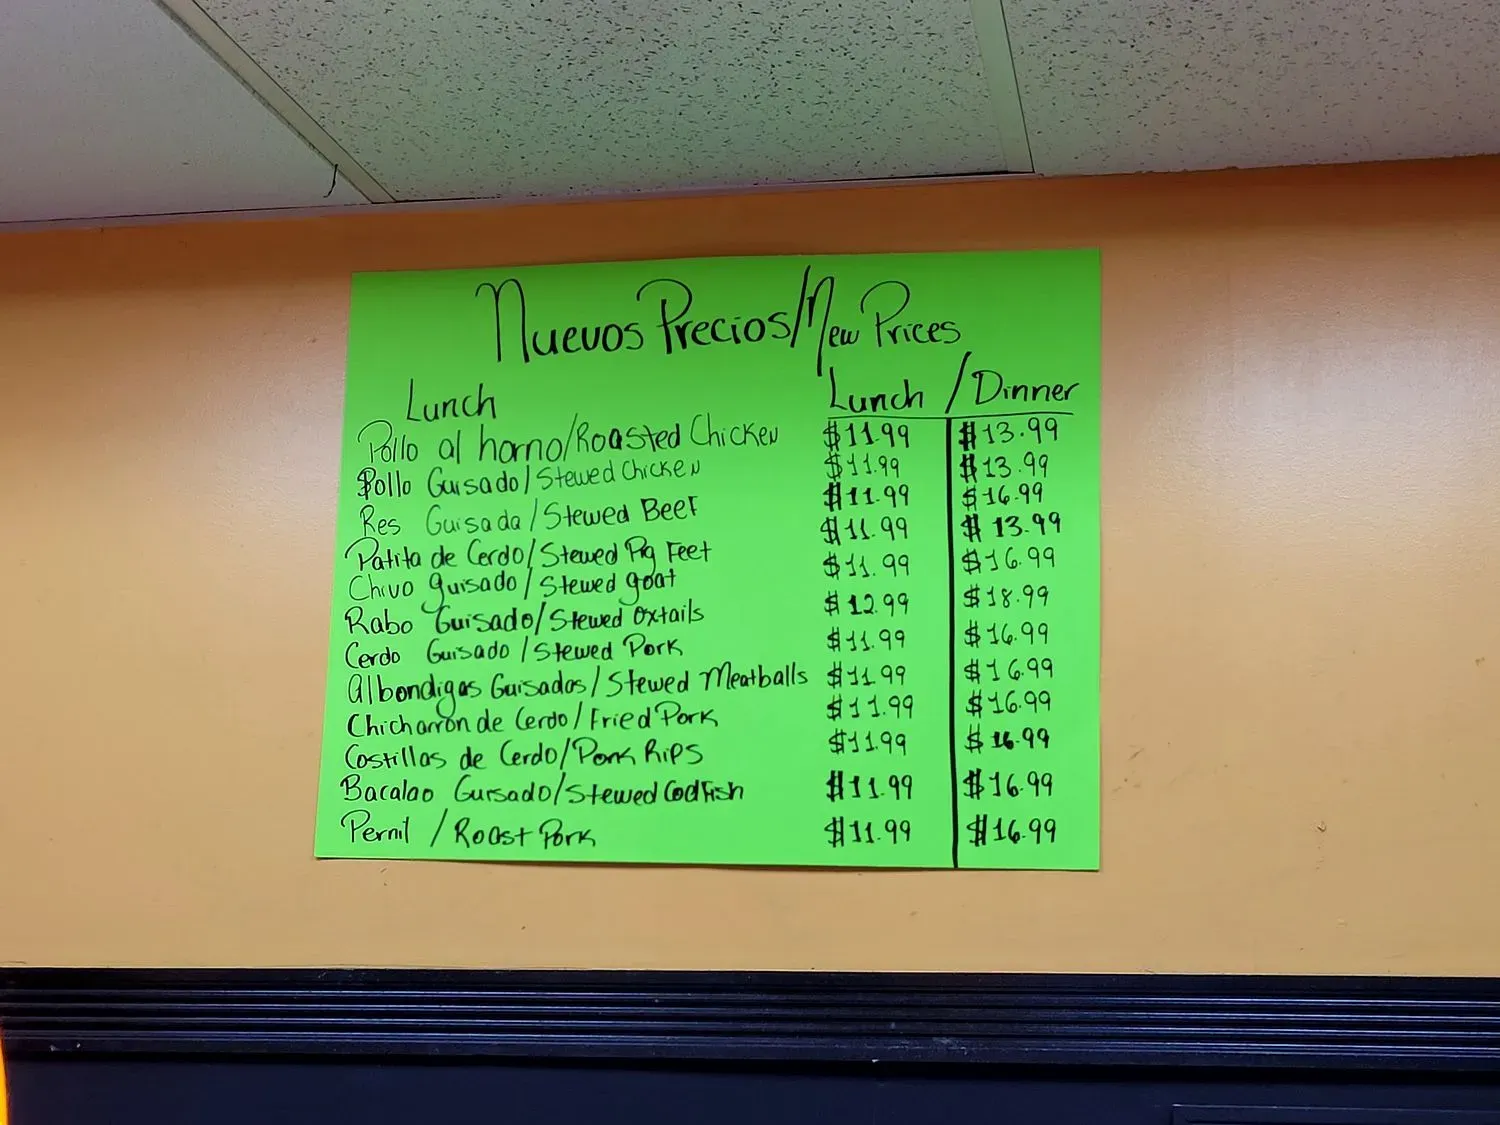 Nuevos Precios/New Prices
Lunch Lunch / Dinner
Pollo al horno/Roasted Chicken $11.99 $13.99
Pollo Guisado/Stewed Chicken $11.99 $13.99
Res Guisada/Stewed Beef $11.99 $16.99
Patita de Cerdo/Stewed Pig Feet $11.99 $13.99
Chivo guisado/Stewed goat $11.99 $16.99
Rabo Guisado/Stewed Oxtails $12.99 $18.99
Cerdo Guisado/Stewed Pork $11.99 $16.99
Albondigas Guisadas/Stewed Meatballs $11.99 $16.99
Chicharrón de Cerdo/Fried Pork $11.99 $16.99
Costillas de Cerdo/Pork Rips $11.99 $16.99
Bacalao Guisado/Stewed Codfish $11.99 $16.99
Pernil / Roast Pork $11.99 $16.99